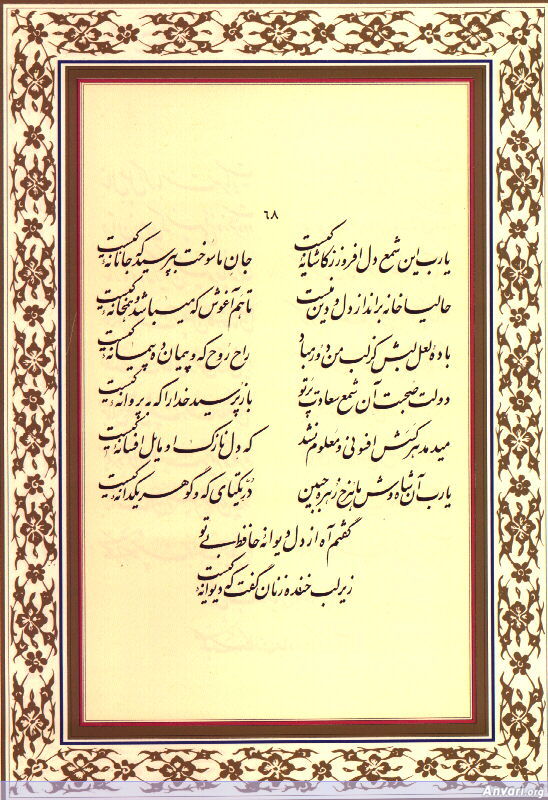 ۶۸
یارب این شمع دل افروز ز کاشانه کیست جان ما سوخت بپرسید که جانانه کیست
حالیا خانه برانداز دل و دین منست تا هم آغوش که میباشد و همخانه کیست
باده لعل لبش کز لب من دور مباد راح روح که و پیمان ده پیمانه کیست
دولت صحبت آن شمع سعادت پرتو باز پرسید خدا را که به پروانه کیست
میدمد هر کسش افسونی و معلوم نشد که دل نازک او مایل افسانه کیست
یارب آن شاه وش ماه رخ زهره جبین در یکتای که و گوهر یکدانه کیست
گفتم آه از دل دیوانه حافظ بی تو
زیر لب خنده زنان گفت که دیوانه کیست
Anvari.org